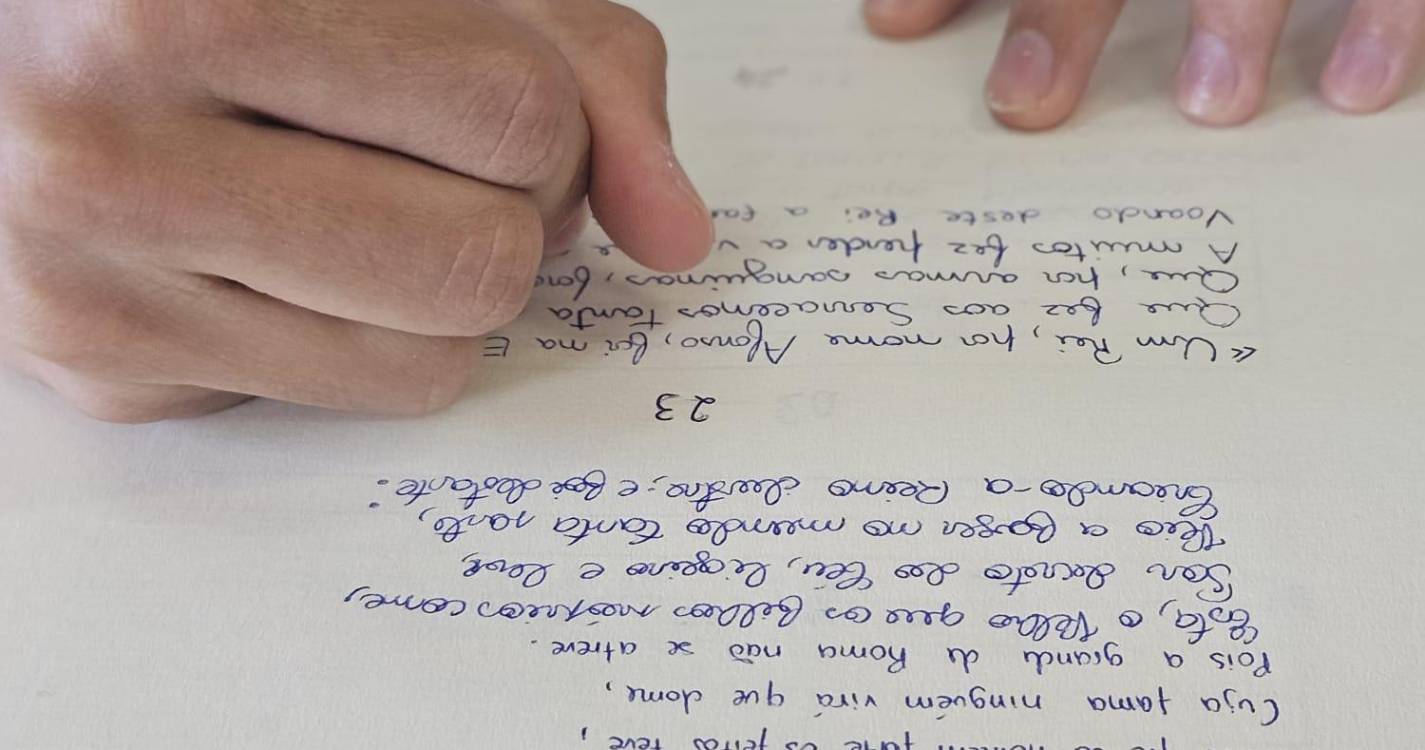 homem forte os feitos teve;
Cuja fama ninguém virá que dome,
Pois a grande de Roma não se atreve.
Esta, o Velho que os filhos próprios come,
Por decreto do Céu, ligeiro e leve,
Veio a fazer no mundo tanta parte,
Criando-a Reino ilustre; e foi destarte:
23
«Um Rei, por nome Afonso, foi na E
Que fez aos Sarracenos tanta
Que, por armas sanguinas, forç
A muitos fez perder a v
Voando deste Rei a fa